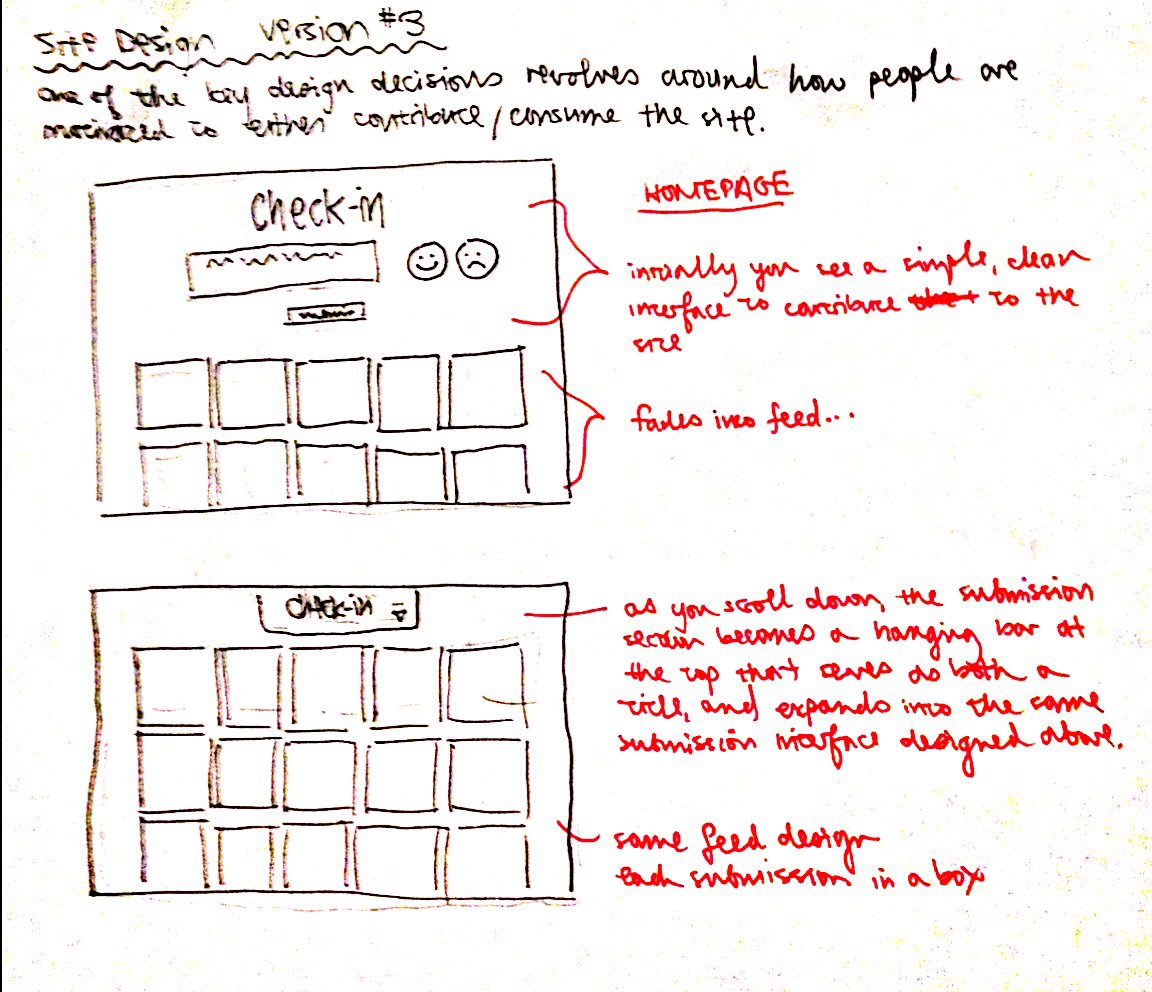 Site Design Version #3
one of the key design decisions revolves around how people are
motivated to either contribute/consume the site.
Check-in
HOMEPAGE
initially you see a simple, clean
interface to contribute to the
site
fades into feed...
Check-in
as you scroll down, the submission
section becomes a hanging bar at
the top that serves as both a
title, and expands into the same
submission interface designed above.
same feed design
each submission in a box